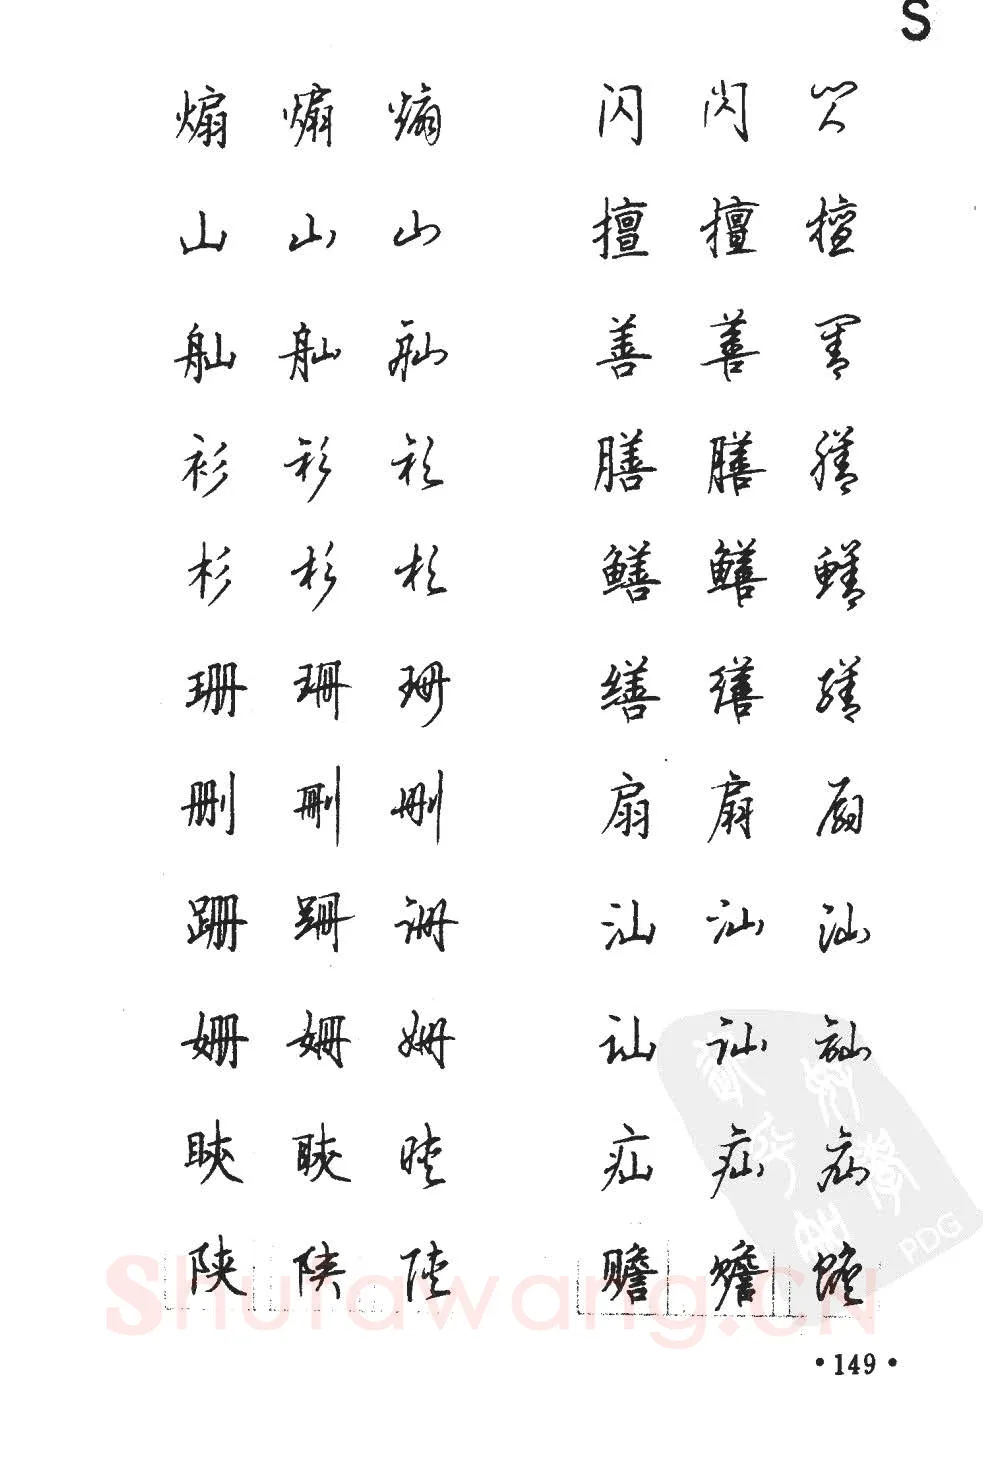 S
煽 煽 煽 闪 闪 闪
山 山 山 擅 擅 擅
舢 舢 舢 善 善 善
衫 衫 衫 膳 膳 膳
杉 杉 杉 鳝 鳝 鳝
珊 珊 珊 缮 缮 缮
删 删 删 扇 扇 扇
跚 跚 跚 汕 汕 汕
姗 姗 姗 讪 讪 讪
疝 疝 疝
陕 陕 陕 赡 赡 赡
Shufawang.CN
PDG
•149•